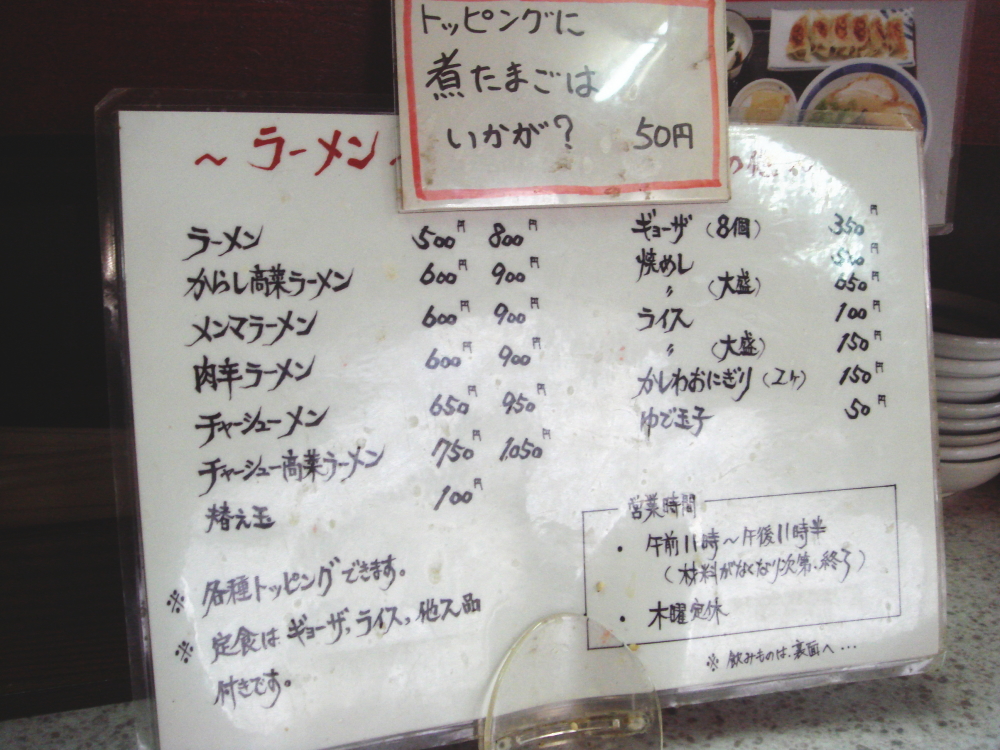 トッピングに
煮たまごは
いかが? 50円
~ ラーメン
ラーメン 500円 800円
からし高菜ラーメン 600円 900円
メンマラーメン 600円 900円
肉辛ラーメン 600円 900円
チャーシューメン 650円 950円
チャーシュー高菜ラーメン 750円 1,050円
替え玉 100円
※ 各種トッピングできます。
※ 定食はギョーザ,ライス,他一品
付きです。
ギョーザ(8個) 350円
焼めし 円
〃 (大盛) 650円
ライス 100円
〃 (大盛) 150円
かしわおにぎり(2ヶ) 150円
ゆで玉子 50円
営業時間
・ 午前11時~午後11時半
(材料がなくなり次第、終了)
・ 木曜定休
※ 飲みものは、裏面へ・・・